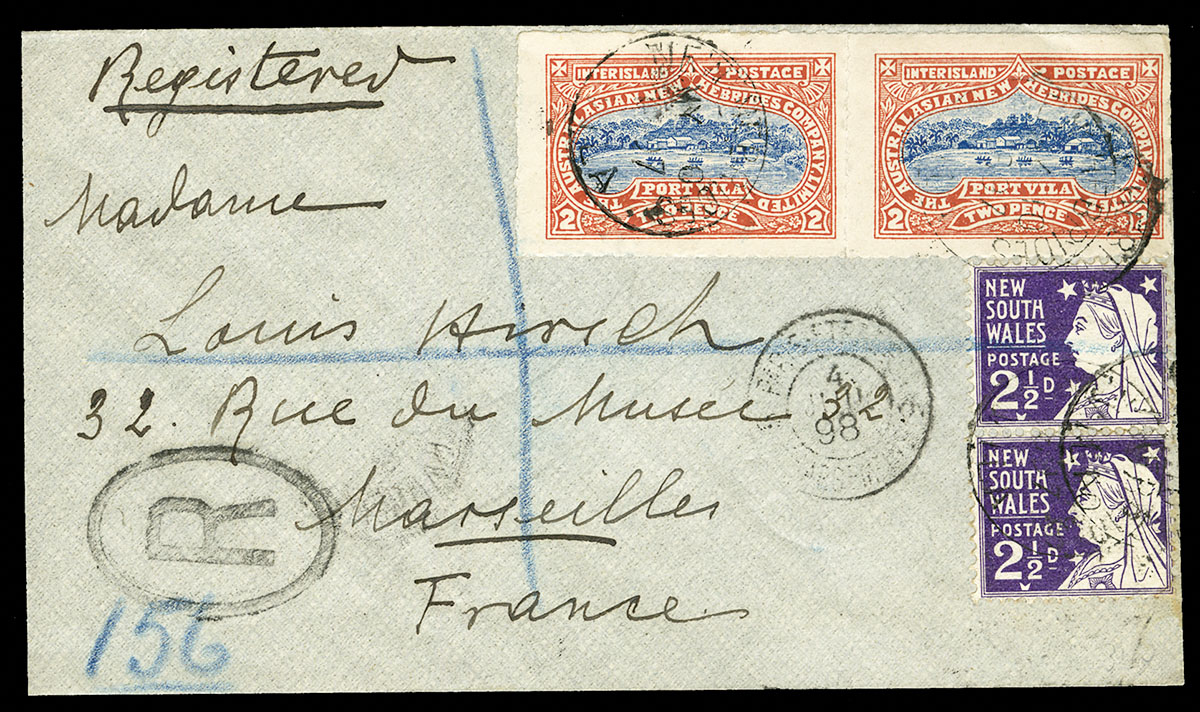 Registered
INTERISLAND POSTAGE
THE AUSTRALASIAN NEW HEBRIDES COMPANY, LIMITED
PORT VILA
2 TWO PENCE 2
INTERISLAND POSTAGE
THE AUSTRALASIAN NEW HEBRIDES COMPANY LIMITED
PORT VILA
2 TWO PENCE 2
Madame
Louis Hirsch
32. Rue du Musée 32
Marseilles
France
NEW
SOUTH
WALES
POSTAGE
2½D
NEW
SOUTH
WALES
POSTAGE
2½D
4
98
R
156